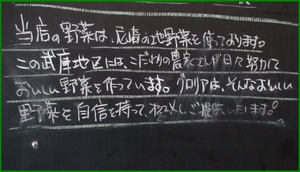 当店の野菜は、尼崎の地野菜を使っております。
この武庫地区には、こだわりの農家さんが日々努力して
おいしい野菜を作っています。グロリアは、そんなおいしい
野菜を自信を持って ご提供いたします!